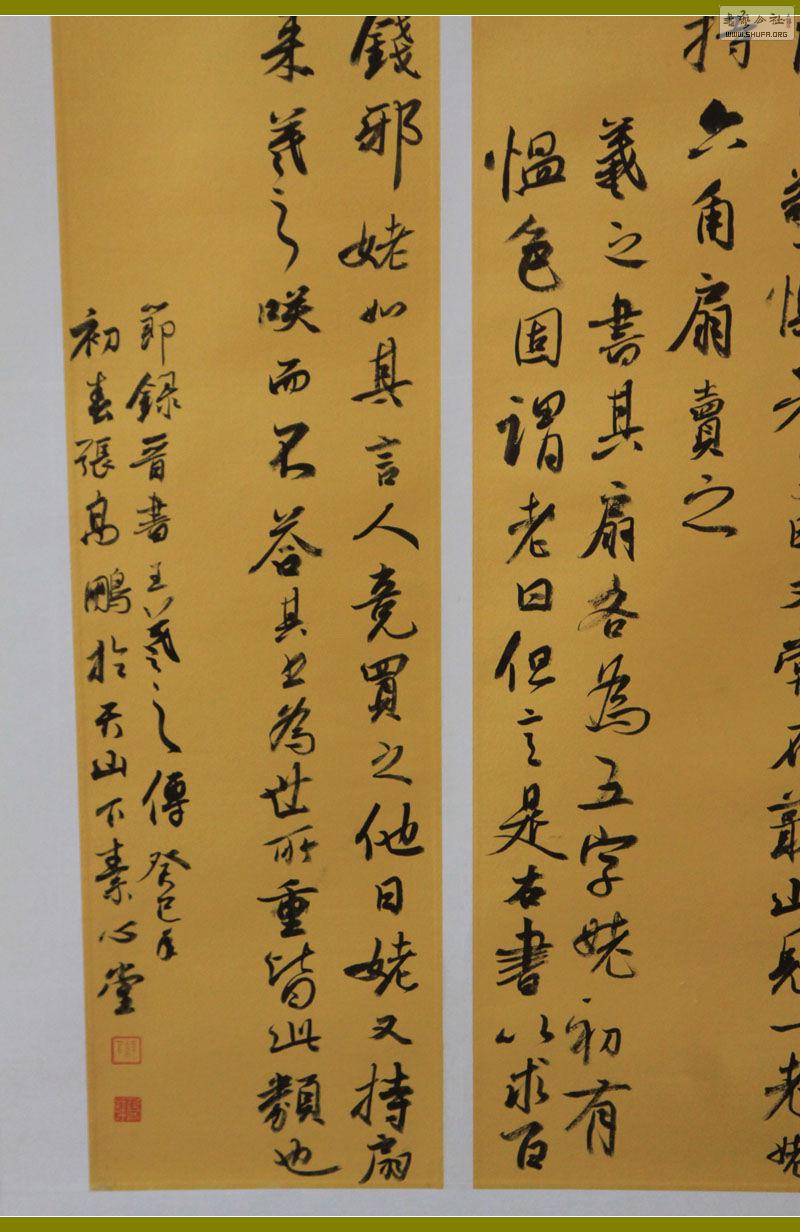 又嘗在蕺山見一老姥
持六角扇賣之
羲之書其扇各為五字姥初有
愠色因謂老曰但言是右書以求百
錢邪姥如其言人竟買之他日姥又持扇
来羲之咲而不答其書為世所重皆此類也
節録晋書王羲之傳癸巳年
初春張高鵬於天山下素心堂
書藝公社
WWW.SHUFA.ORG